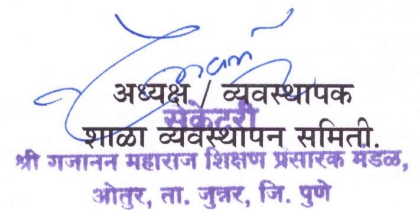 अध्यक्ष / व्यवस्थापक
सेक्रेटरी
शाळा व्यवस्थापन समिती.
श्री गजानन महाराज शिक्षण प्रसारक मंडळ,
ओतुर, ता. जुन्नर, जि. पुणे